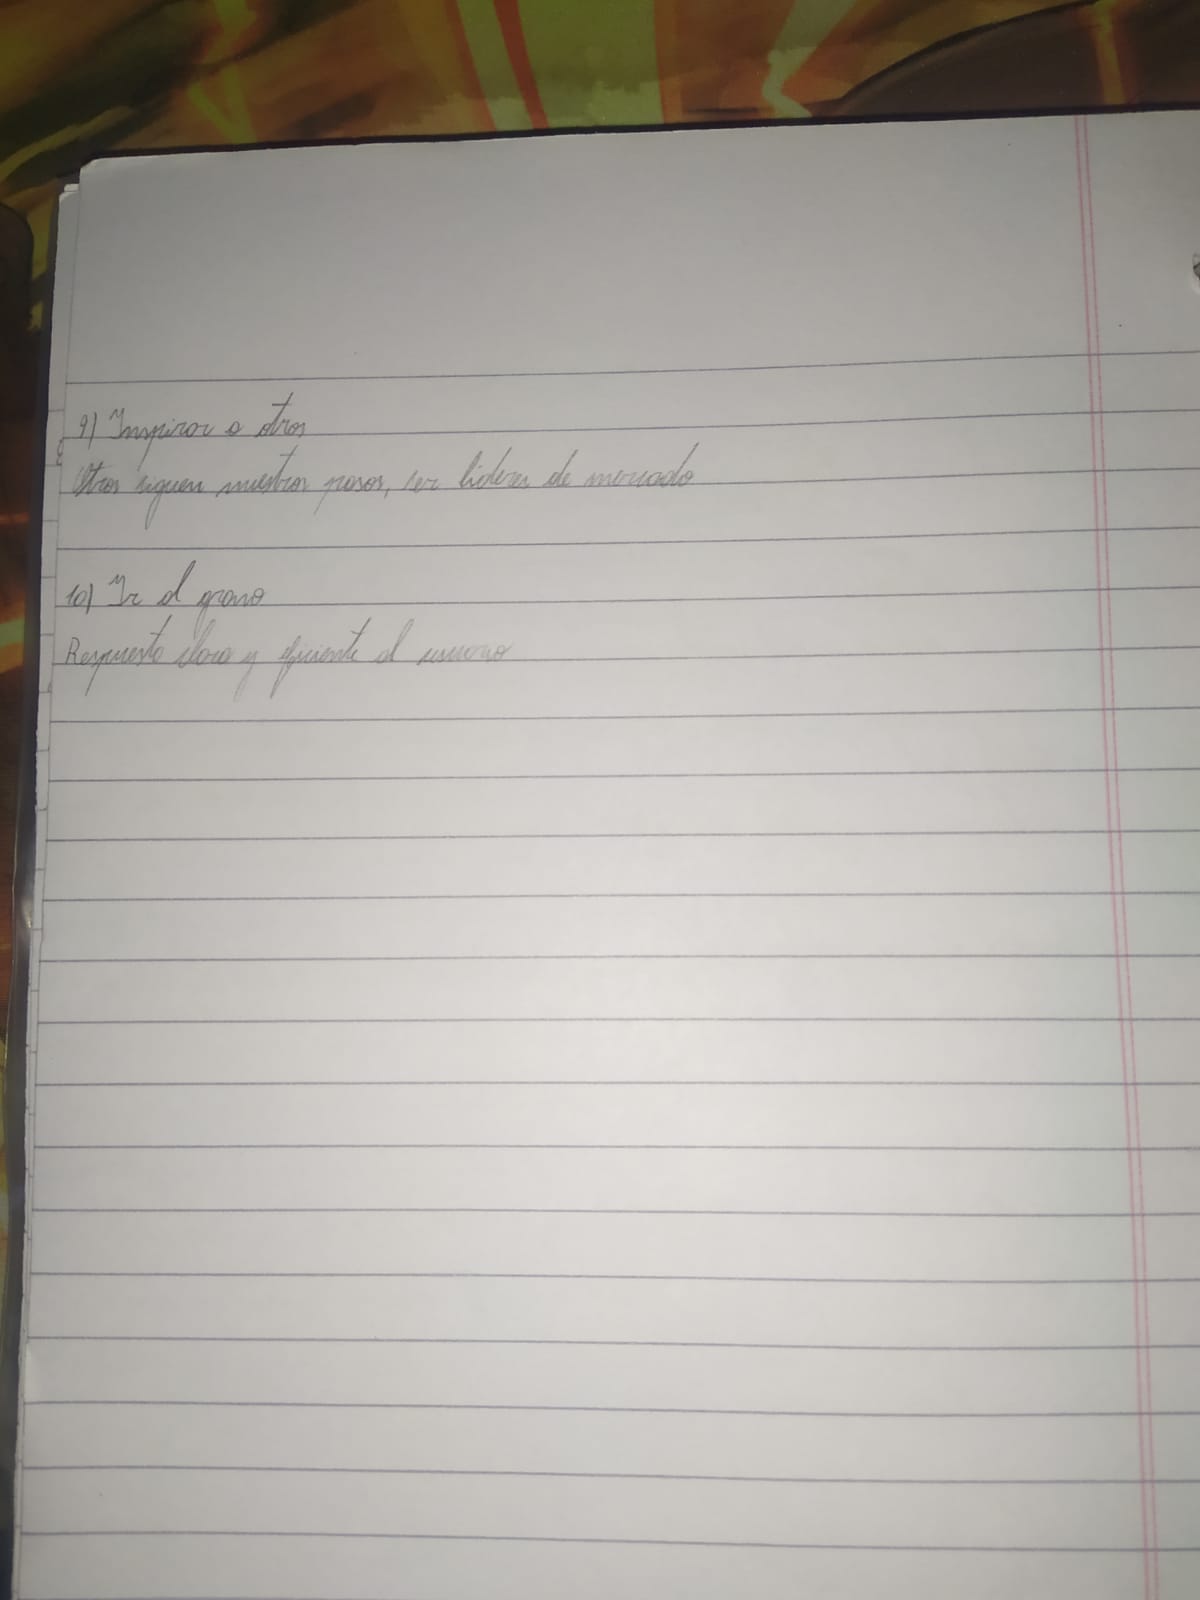 9) Inspirar a otros
Otros siguen nuestros pasos, ser lideres de mercado
10) Ir al grano
Respuesta clara y eficiente al usuario